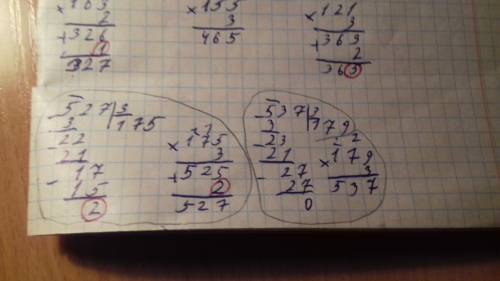 ×163
2
+326
1
327
×155
3
465
×121
3
+363
2
-527|3
3 175
-22
21
-17
15
2
2 1
×175
3
+525
2
527
-537|3
3 179
-23
21
-27
27
0
2 2
×179
3
537